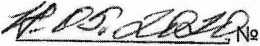 11.05.2020. №